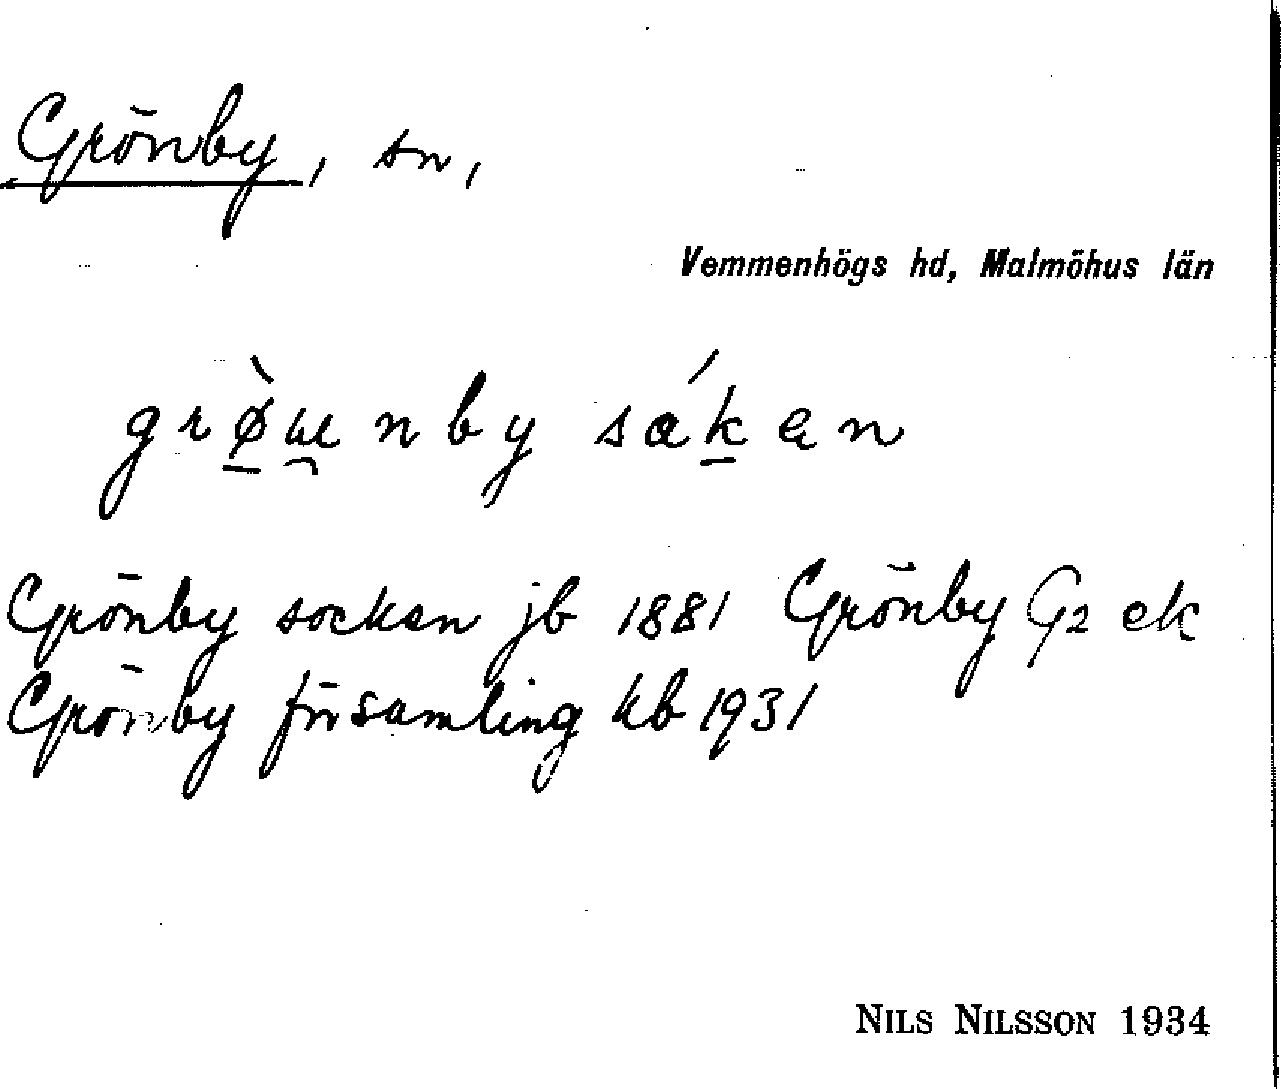 Grönby, sn,
Vemmenhögs hd, Malmöhus län
Grönby socken jb 1881 Grönby G2 ek
Grönby församling kb 1931
NILS NILSSON 1934